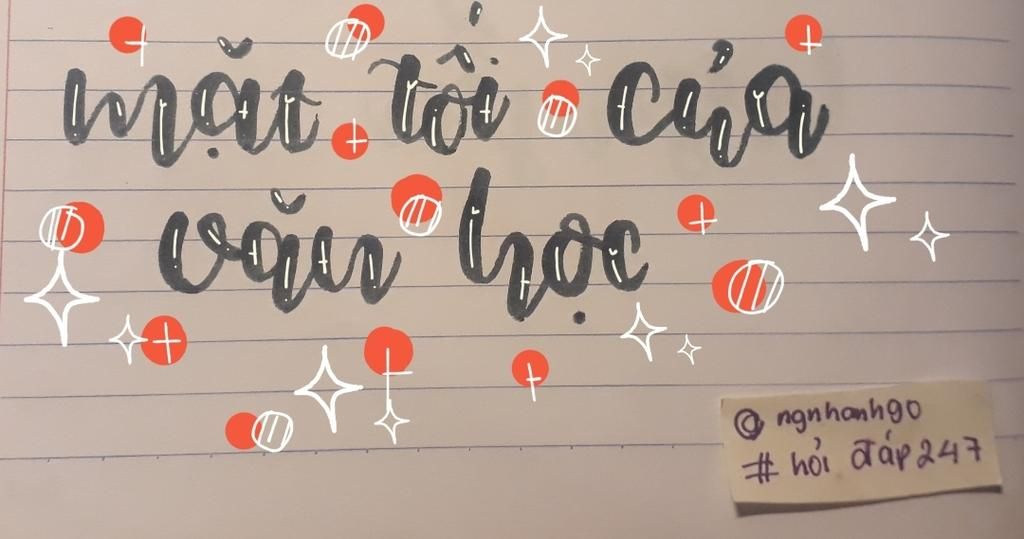 mặt tối của
văn học
@ngnhanh90
# hỏi đáp 247